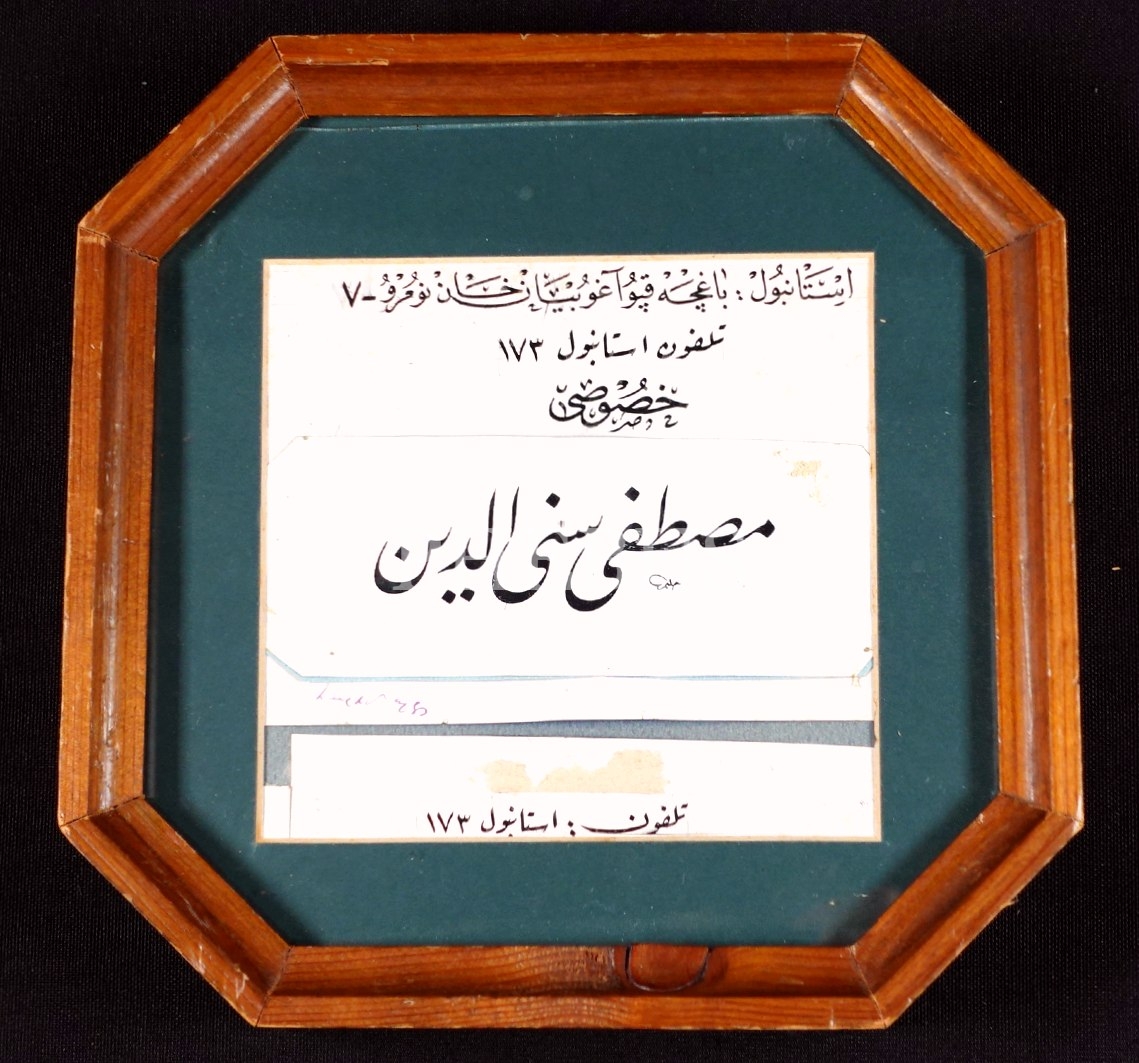 استانبول : باغچه قپو آغوبیان خان نومرو - ٧
تلفون استانبول ١٧٣
خصوصی
مصطفی سنی الدین
تلفون : استانبول ١٧٣